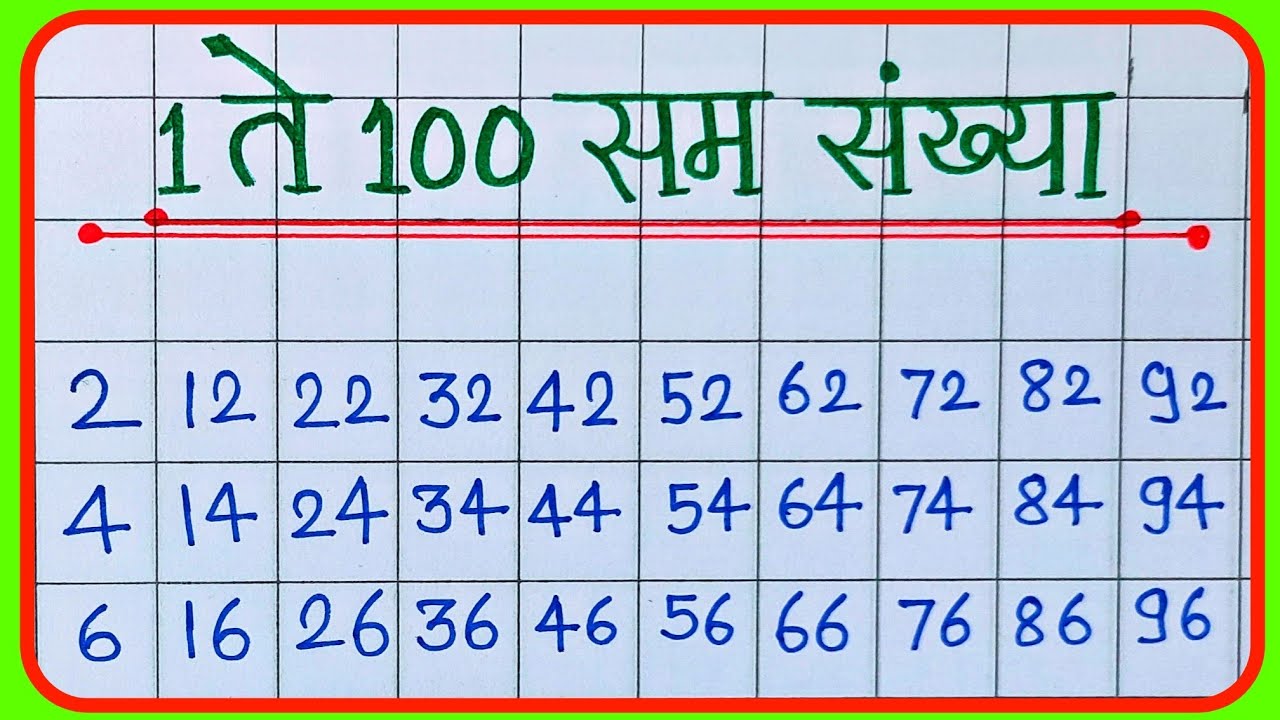 1 ते 100 सम संख्या
2 12 22 32 42 52 62 72 82 92
4 14 24 34 44 54 64 74 84 94
6 16 26 36 46 56 66 76 86 96